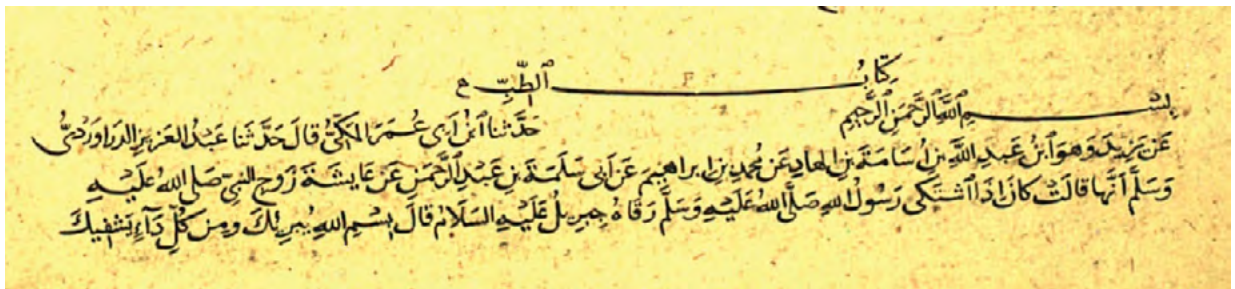 كِتَابُ ٱلطِّبِّ
بِسْمِ ٱللَّهِ ٱلرَّحْمَنِ ٱلرَّحِيمِ حَدَّثنا ٱبْنُ اَبِى عُمَرَ المَكِّىُّ قالَ حَدَّثَنا عَبْدُ العَزِيزِ الدَرَاوَرْدِىُّ
عَنْ يَزِيدَ وَهوَ ٱبْنُ عَبْدِ اللَّهِ بنِ اُسَامَةَ بنِ الهادِ عَن مُحمدِ بنِ ابراهِيم عَن اَبى سَلَمَةَ بنِ عَبْدِ ٱلرَّحْمَنِ عَن عَايِشَةَ زَوْجِ النبىِّ صَلى اللهُ عَلَيْهِ
وَسَلَّم اَنَّها قالَتْ كانَ اِذَا ٱشْتَكَى رَسُولُ اللهِ صَلَّى اللهُ عَلَيهِ وَسَلَّم رَقَاهُ جِبرِيلُ عَلَيْهِ السَلَامُ قالَ بِسْمِ اللهِ يُبرِيكَ وَمِن كُلِّ دَآءٍ يَشْفِيكَ